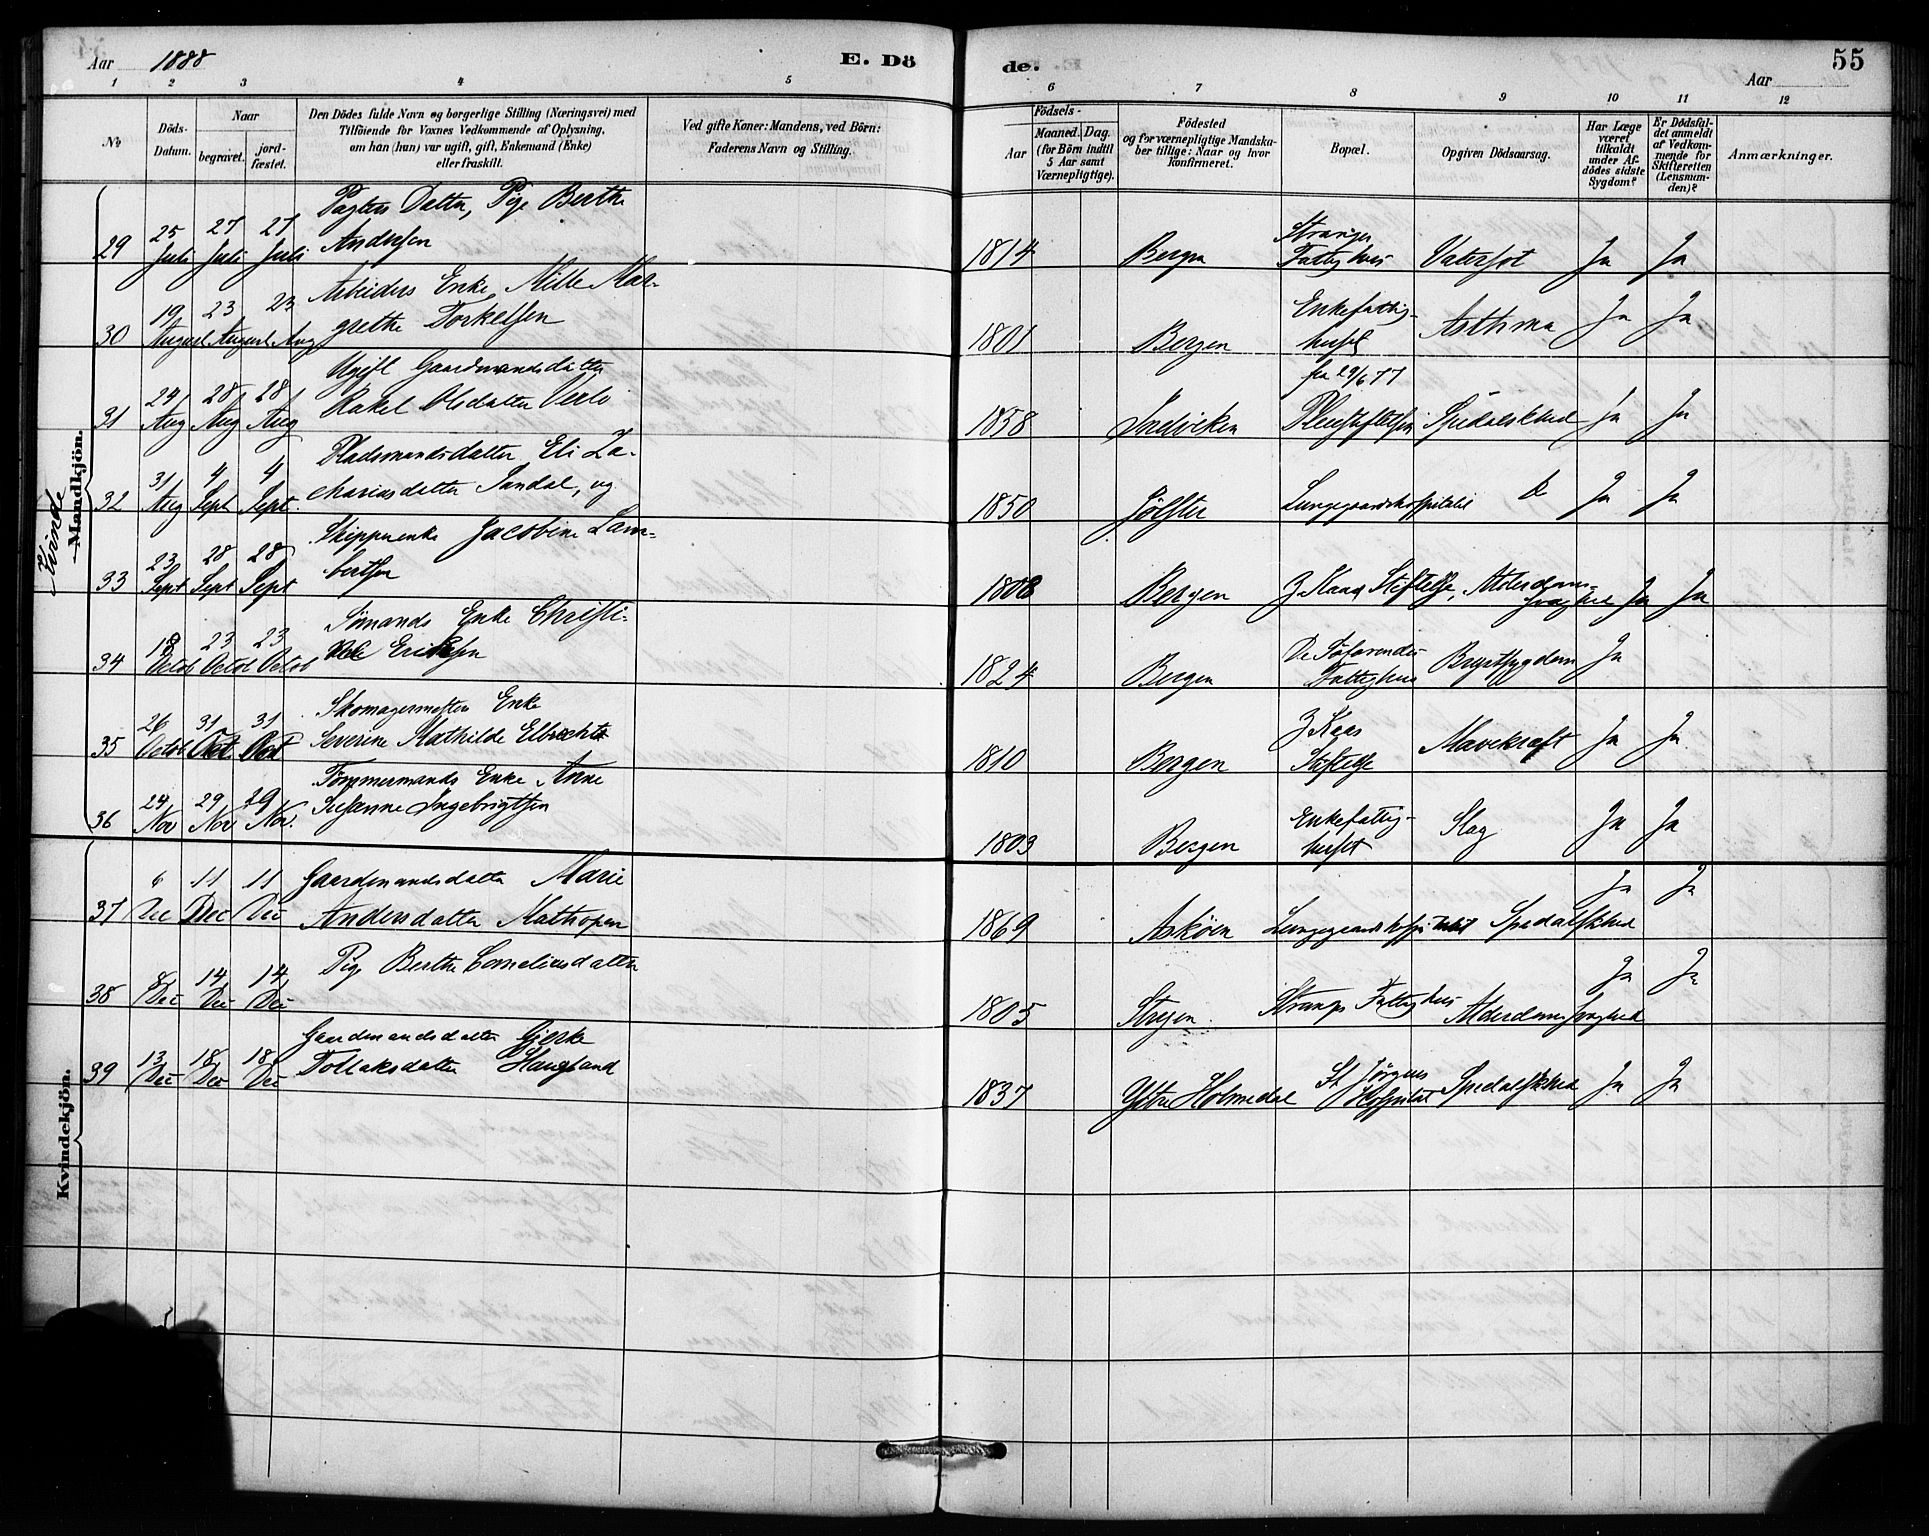 Aar 1888
E. Dö
de.
Aar
55
1 2 3 4 5 6 7 8 9 10 11 12
№
Döds-
Datum.
Naar
begravet.
jord-
fæstet.
Den Dödes fulde Navn og borgerlige Stilling (Næringsvei) med
Tilföiende for Voxnes Vedkommende af Oplysning,
om han (hun) var ugift, gift, Enkemand (Enke)
eller fraskilt.
Ved gifte Koner: Mandens, ved Börn:
Faderens Navn og Stilling.
Födsels-
Aar
Maaned. Dag.
(for Börn indtil
5 Aar samt
Værnepligtige).
Födested
og for værnepligtige Mandska-
ber tillige: Naar og hvor
konfirmeret.
Bopæl.
Opgiven Dödsaarsag.
Har Læge
været
tilkaldt
under Af-
dödes sidste
Sygdom?
Er Dödsfal-
det anmeldt
af Vedkom-
mende for
Skifteretten
(Lensman-
den)?
Anmærkninger.
Kvinde
Mandkjön.
Kvindekjön.
29 25 Juli 27 Juli 27 Juli
Datter, Pige Berthe
Andersen
1814 Bergen
Stranges
Fattighus
Vatersot Ja Ja
30 19 August 23 August 23 Aug
Arbeiders Enke Mille Mar-
grethe Torkelsen
1801 Bergen
Enkefattig-
huset
Asthma Ja Ja
31 24 Aug 28 Aug 28 Aug
Ugift Gaardmandsdatter
Rakel Olsdatter
1858 Indviken
fra 29/6 77
Pleiestiftelsen
Spedalskhed Ja Ja
32 31 Aug 4 Sept 4 Sept.
Pladsmandsdatter Eli Za-
chariasdatter
1850 Jölster Lungegaardshospitalet Do Ja Ja
33 23 Sept 28 Sept 28 Sept
Skipperenke Jacobine Lam-
bertsen
1808 Bergen Z Kaas Stiftelse, Alderdoms-
svaghed Ja Ja
34 18 Octob 23 Octob 23 Octob
Sömands Enke Christi-
Eriksen
1824 Bergen
De Söfarendes
Fattighus
Brystsygdom Ja
35 26 Octob 31 Oct. 31 Oct
Skomagermester Enke
Severine Mathilde Elbrechts
1810 Bergen
Z Kaas
Stiftelse
Mavekræft Ja Ja
36 24 Nov 29 Nov 29 Nov.
Tömmermands Enke Anne
Susanne Ingebrigtsen
1803 Bergen
Enkefattig-
huset
Slag Ja Ja
37 6 Dec 11 Dec 11 Dec
Gaardmandsdatter Marie
Andersdatter Mathopen
1869 Asköen Lungegaardshospitalet Spedalskhed Ja Ja
38 8 Dec 14 Dec 14 Dec
Pige Berthe Corneliusdatter
1805 Stranges Fattighus Alderdomssvaghed Ja Ja
39 13 Dec 18 Dec 18 Dec
Gaardmandsdatter Gjerke
Tollaksdatter Haugland
1837 Yttre Holmedal
St Jörgens
Hospital
Spedalskhed Ja Ja